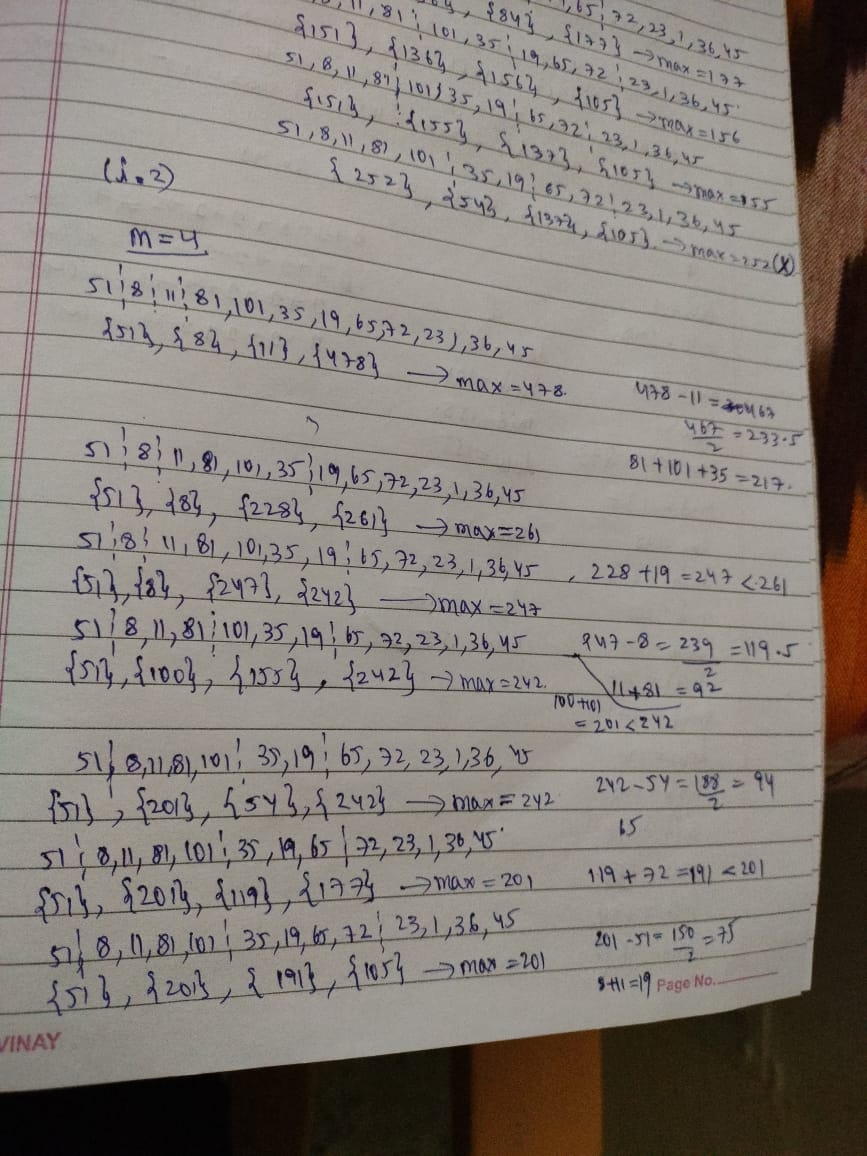 11, 81 ¦ 101, 35 ¦ 19, 65, 72 ¦ 23, 1, 36, 45
{84}, {177} → max = 177
65 ¦ 72, 23, 1, 36, 45
{151}, {136}, {156}, {105} → max = 156
51, 8, 11, 81 ¦ 101, 35, 19 ¦ 65, 72 ¦ 23, 1, 36, 45
{151}, {155}, {137}, {105} → max = 155
51, 8, 11, 81, 101 ¦ 35, 19 ¦ 65, 72 ¦ 23, 1, 36, 45
{252}, {54}, {137}, {105} → max = 252 (X)
(i.2)
m = 4
51 ¦ 8 ¦ 11 ¦ 81, 101, 35, 19, 65, 72, 23, 1, 36, 45
{51}, {8}, {11}, {478} → max = 478.
478 - 11 = 467
467/2 = 233.5
81 + 101 + 35 = 217.
51 ¦ 8 ¦ 11, 81, 101, 35 ¦ 19, 65, 72, 23, 1, 36, 45
{51}, {8}, {228}, {261} → max = 261
51 ¦ 8 ¦ 11, 81, 101, 35, 19 ¦ 65, 72, 23, 1, 36, 45 , 228 + 19 = 247 < 261
{51}, {8}, {247}, {242} → max = 247
51 ¦ 8, 11, 81 ¦ 101, 35, 19 ¦ 65, 72, 23, 1, 36, 45 247 - 8 = 239/2 = 119.5
{51}, {100}, {155}, {242} → max = 242. 11 + 81 = 92
100 + 101
= 201 < 242
51 ¦ 8, 11, 81, 101 ¦ 35, 19 ¦ 65, 72, 23, 1, 36, 45
{51}, {201}, {54}, {242} → max = 242 242 - 54 = 188/2 = 94
65
51 ¦ 8, 11, 81, 101 ¦ 35, 19, 65 ¦ 72, 23, 1, 36, 45
{51}, {201}, {119}, {177} → max = 201 119 + 72 = 191 < 201
51 ¦ 8, 11, 81, 101 ¦ 35, 19, 65, 72 ¦ 23, 1, 36, 45 201 - 51 = 150/2 = 75
{51}, {201}, {191}, {105} → max = 201
8 + 11 = 19 Page No.
VINAY